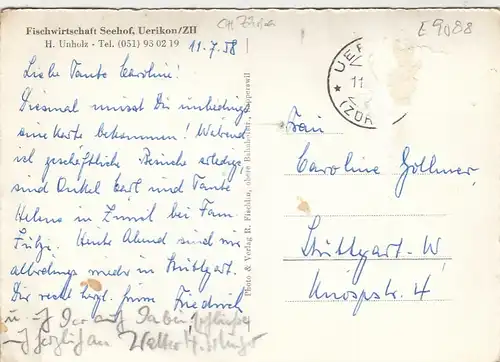 Fischwirtschaft Seehof, Uerikon/ZH
H. Unholz - Tel. (051) 93 02 19
11.7.58
E 9088
Liebe Tante Caroline!
Diesmal musst Du unbedingt
eine Karte bekommen! Während
ich geschäftliche Besuche erledige,
sind Onkel Carl und Tante
Helene in bei Fam.
Heute Abend sind wir
allerdings wieder in Stuttgart.
Dir recht herzl. Friedrich
u.
herzlich an Walter
Photo & Verlag R. Fischlin, obere Bahnhofstr., Rapperswil
UER
11
(ZÜR
Frau
Caroline Gollmer
Stuttgart-W
Knospstr. 4